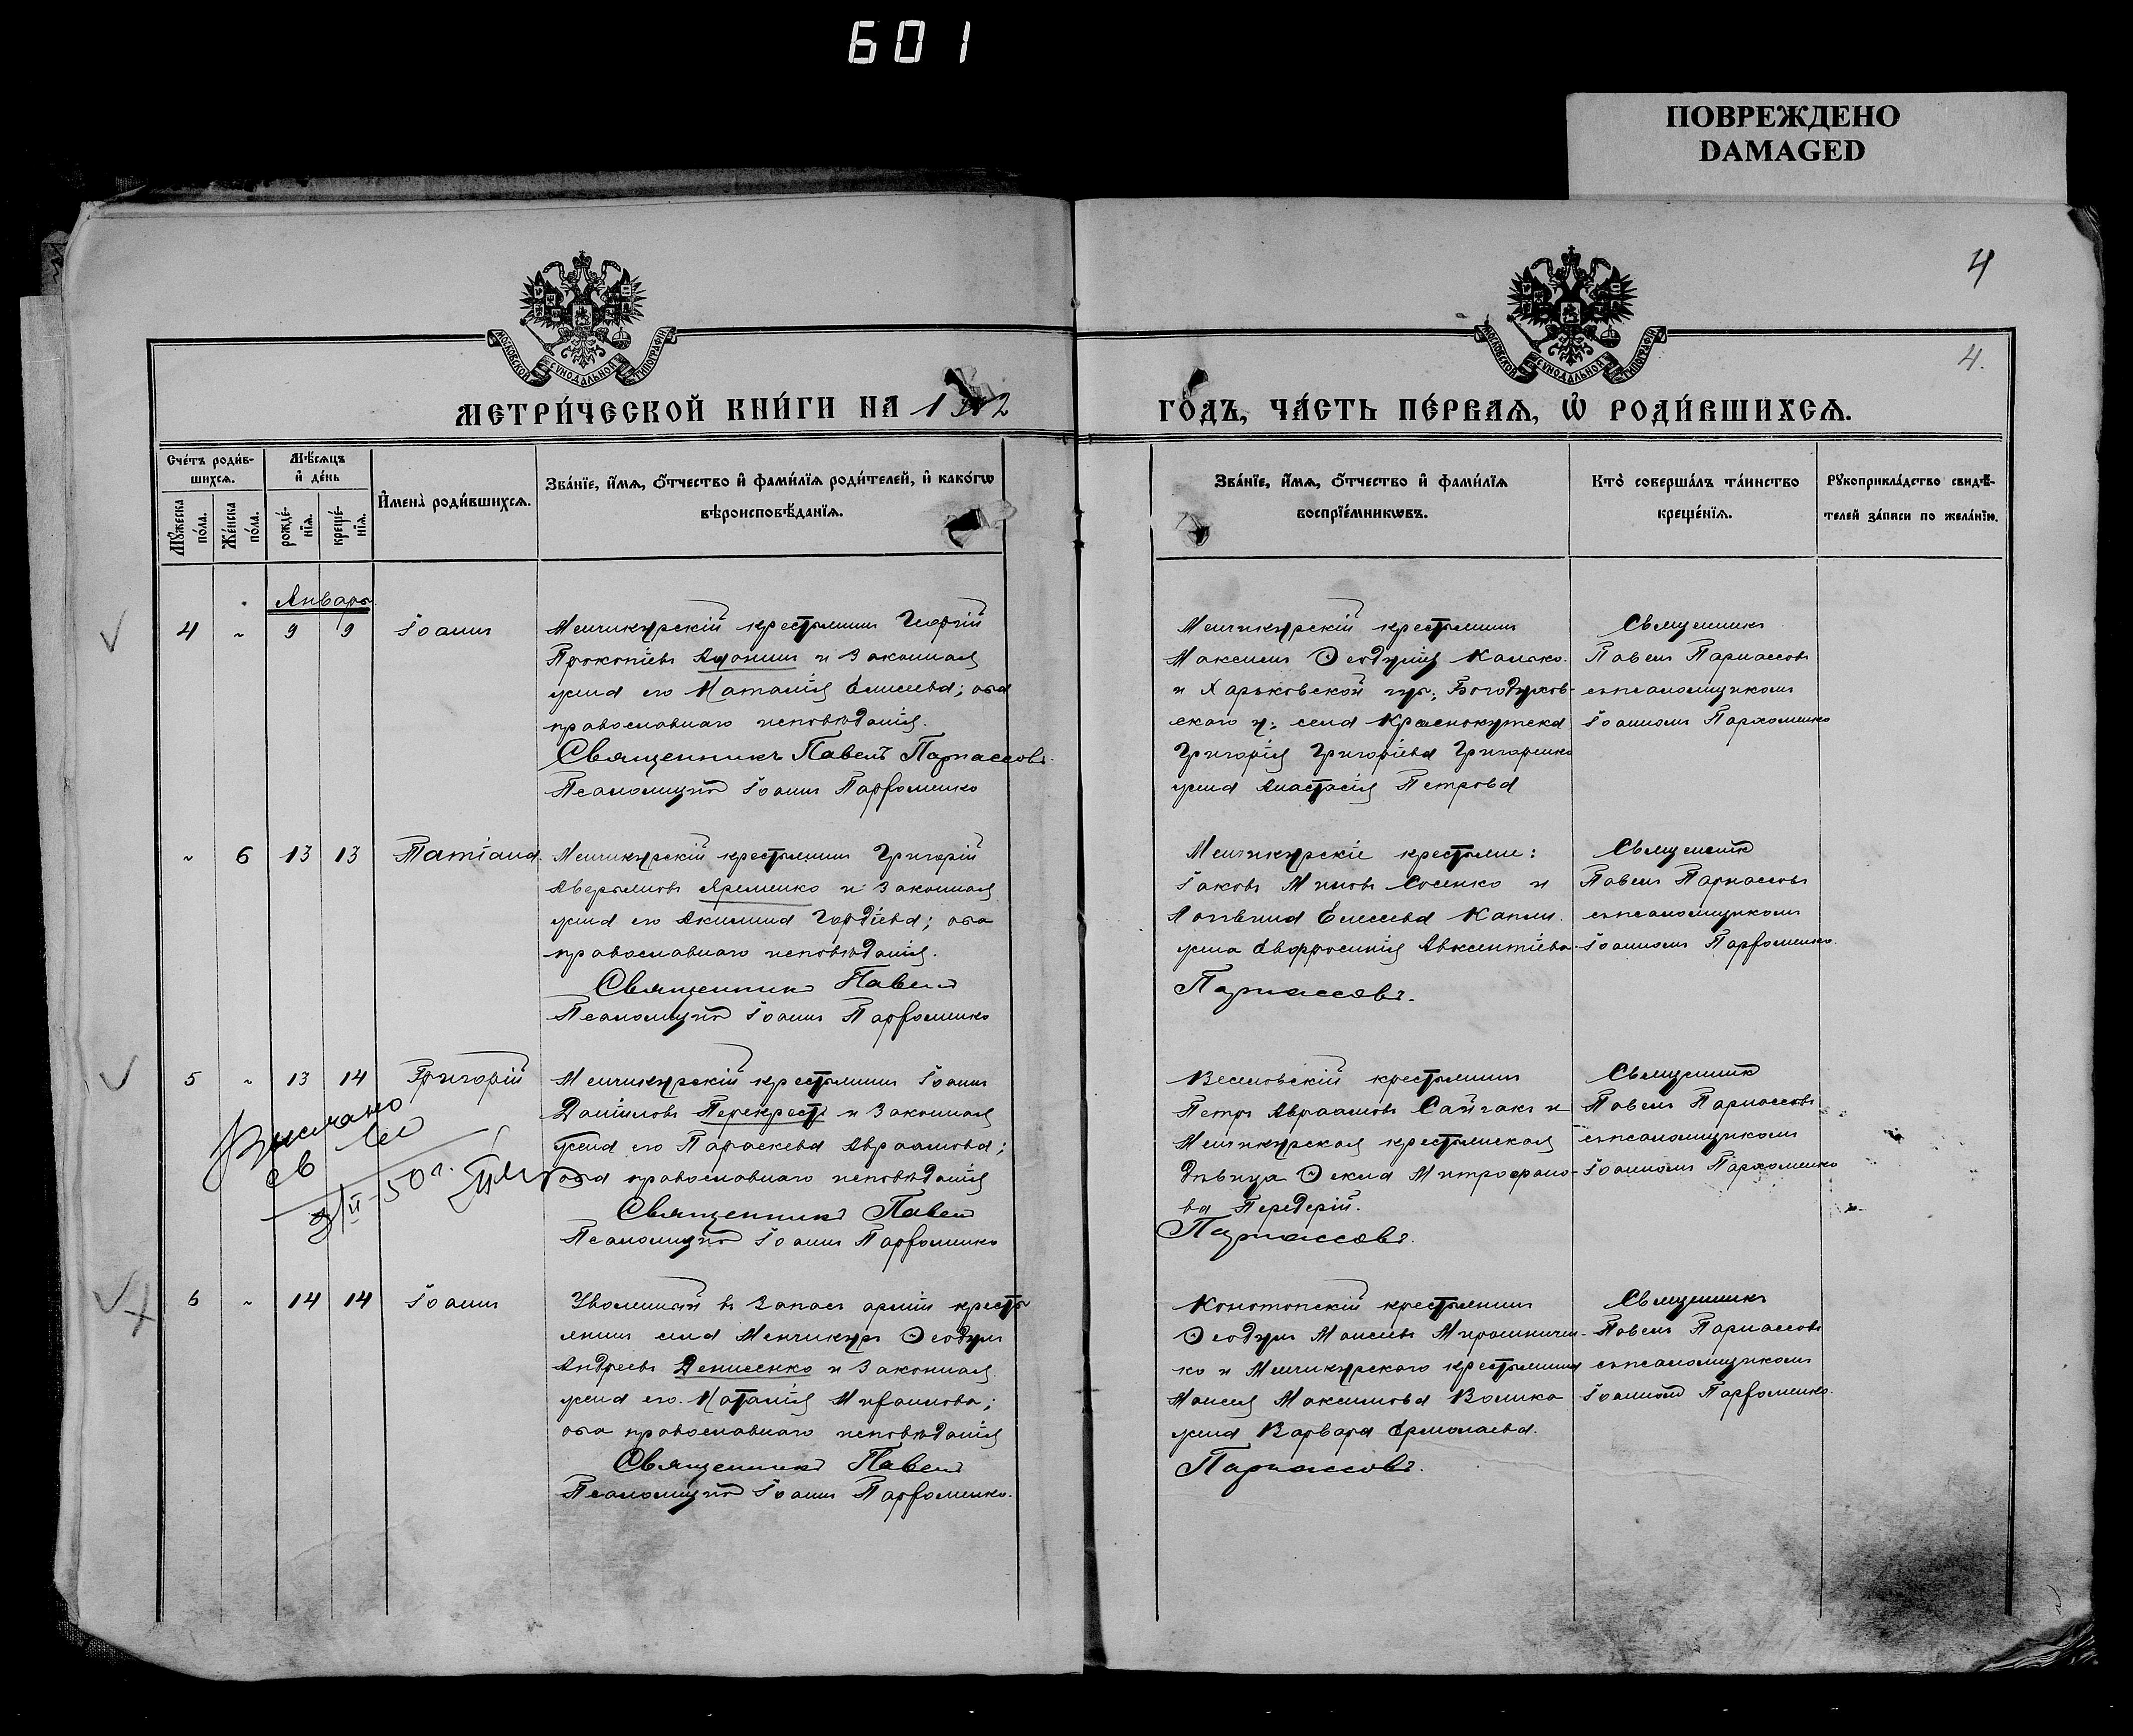 601
ПОВРЕЖДЕНО
DAMAGED
4
4.
МОСКОВСКОЙ СѴНОДАЛЬНОЙ ТИПОГРАФІИ
МОСКОВСКОЙ СѴНОДАЛЬНОЙ ТИПОГРАФІИ
МЕТРИ́ЧЕСКОЙ КНИ́ГИ НА 1902
ГО́ДЪ, ЧА́СТЬ ПЕ́РВАѦ, Ѡ҆ РОДИ́ВШИХСѦ.
Сче́тъ роди́в-
шихсѧ.
Мꙋ́жеска по́ла.
Же́нска по́ла.
Мѣ́сѧцъ
и҆ де́нь
рожде́-
нїѧ.
креще́-
нїѧ.
И҆мена̀ роди́вшихсѧ.
Зва́нїе, и҆́мѧ, ѻ҆́тчество и҆ фами́лїѧ роди́телей, и҆ како́гѡ
вѣроисповѣ́данїѧ.
Зва́нїе, и҆́мѧ, ѻ҆́тчество и҆ фами́лїѧ
воспрїе́мникѡвъ.
Кто̀ соверша́лъ та́инство
креще́нїѧ.
Рꙋкоприкла́дство свидѣ́-
телей за́писи по жела́нїю.
Январь
4 " 9 9 Іоаннъ
Менчикурскій крестьянинъ Георгій
Прокопіевъ Афонинъ и законная
жена его Наталія Елисеева; оба
православнаго исповѣданія.
Священникъ Павелъ Парнассовъ
Псаломщикъ Іоаннъ Пархоменко
Менчикурскій крестьянинъ
Максимъ Ѳеодуліи
и Харьковской губ: Богодухов-
скаго у: села Краснокутска
Григорія Григоріева Григоренко
жена Анастасія Петрова
Священникъ
Павелъ Парнассовъ
съ псаломщикомъ
Іоанномъ Пархоменко
" 6 13 13 Татіана.
Менчикурскій крестьянинъ Григорій
Аверьяновъ Яременко и законная
жена его Акилина Гордіева; оба
православнаго исповѣданія.
Священникъ Павелъ
Псаломщикъ Іоаннъ Пархоменко
Менчикурскіе крестьяне:
Іаковъ Миновъ Сосенко и
Логвина Елисеева
жена Евфросинія Авксентіева
Парнассовъ.
Священникъ
Павелъ Парнассовъ
съ псаломщикомъ
Іоанномъ Пархоменко.
5 " 13 14 Григорій
Менчикурскій крестьянинъ Іоаннъ
Даніиловъ Перекрестъ и законная
жена его Параскева Авраамова;
оба православнаго исповѣданія
Священникъ Павелъ
Псаломщикъ Іоаннъ Пархоменко
Веселовскій крестьянинъ
Петръ Авраамовъ Сайгакъ и
Менчикурская крестьянская
дѣвица Ѳекла Митрофано-
ва Передерій.
Парнассовъ.
Священникъ
Павелъ Парнассовъ
съ псаломщикомъ
Іоанномъ Пархоменко
Выслано
св
3/II-50 г.
6 " 14 14 Іоаннъ
Уволенный въ запасъ арміи кресть
янинъ села Менчикуръ Ѳеодулъ
Андреевъ Денисенко и законная
жена его Наталія Михаилова;
оба православнаго исповѣданія
Священникъ Павелъ
Псаломщикъ Іоаннъ Пархоменко.
Конотопскій крестьянинъ
Ѳеодулъ Моисеевъ Мирошничен-
ко и Менчикурскаго крестьянина
Моисея Максимова Волика
жена Варвара Ермолаева.
Парнассовъ.
Священникъ
Павелъ Парнассовъ
съ псаломщикомъ
Іоанномъ Пархоменко.